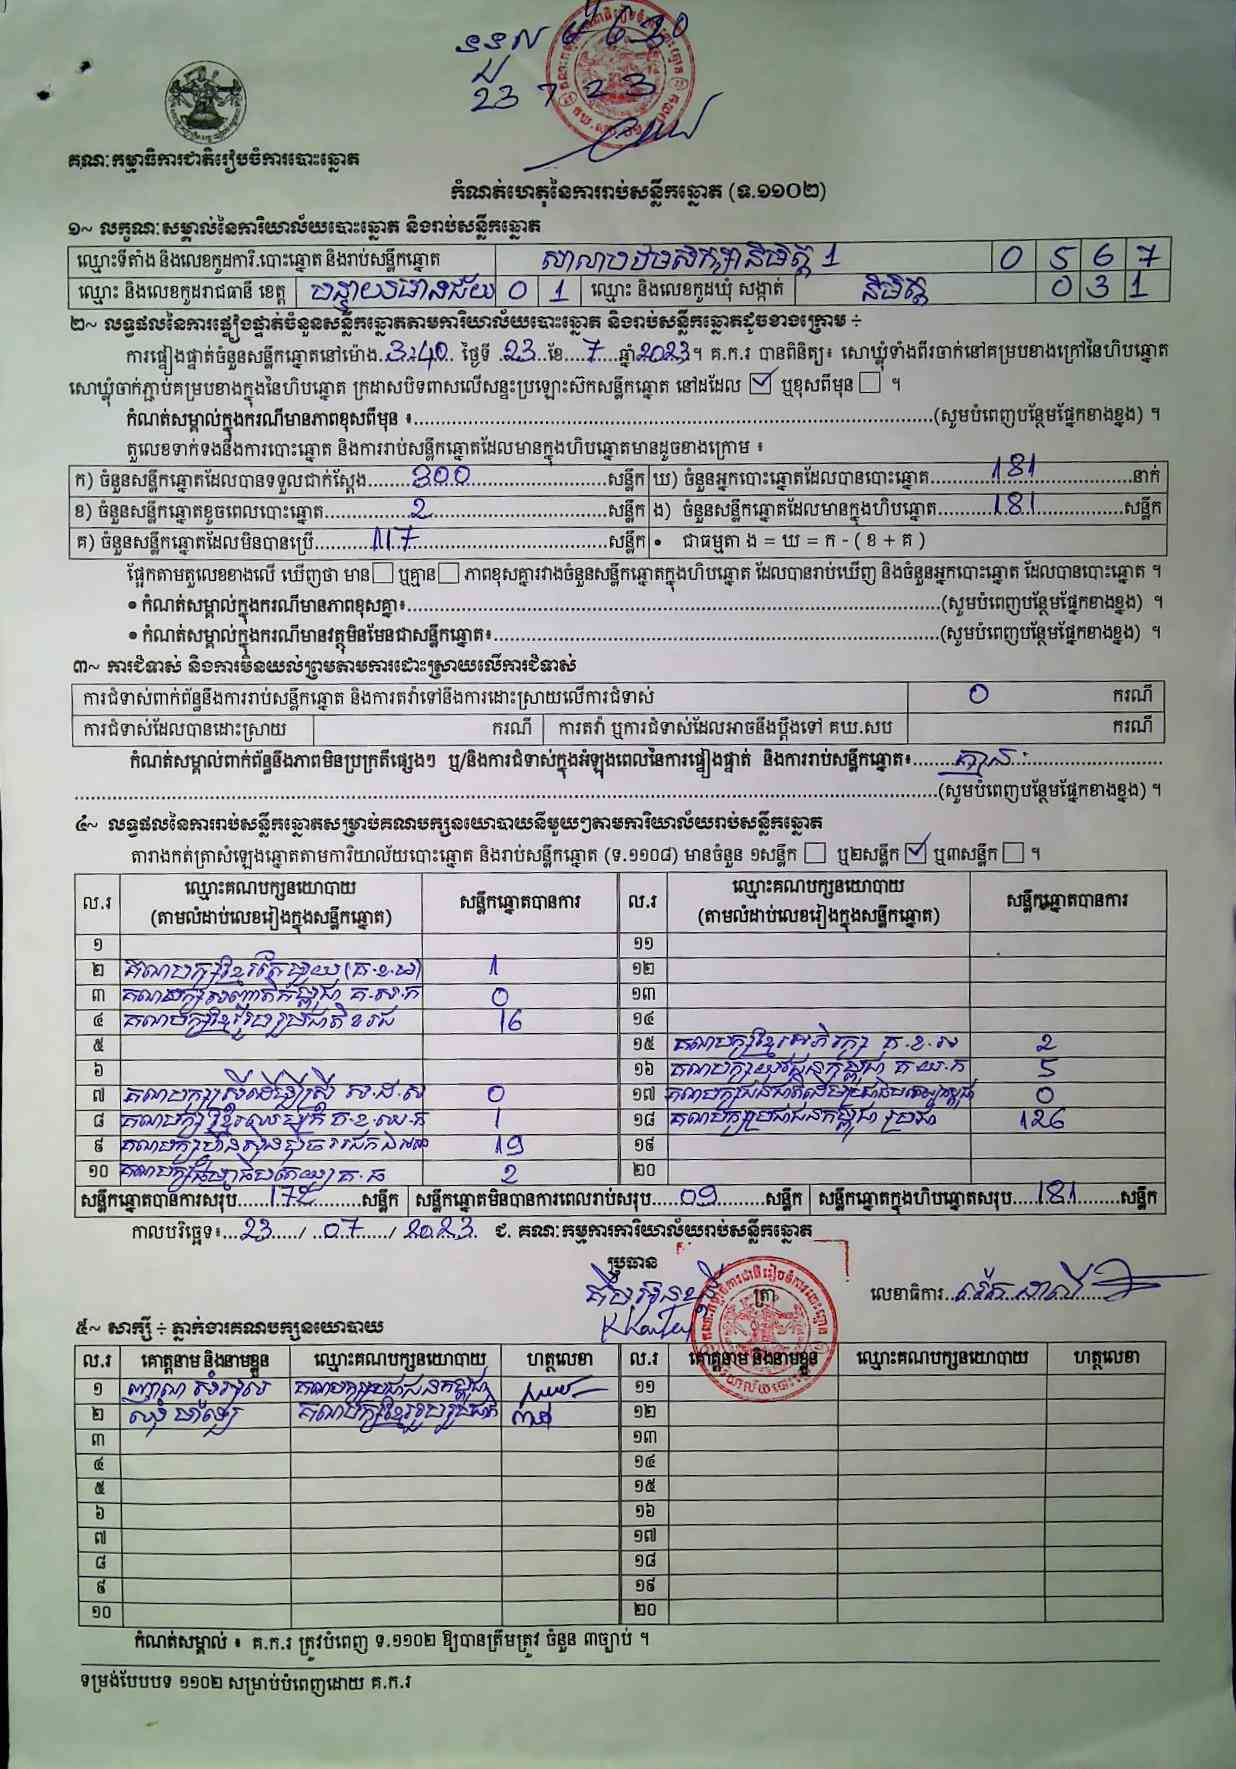 ទទួល ម៉ 6 30
ជ
23 7 23
គណៈកម្មាធិការជាតិរៀបចំការបោះឆ្នោត
កំណត់ហេតុនៃការរាប់សន្លឹកឆ្នោត (ទ.១១០២)
១~ លក្ខណៈសម្គាល់នៃការិយាល័យបោះឆ្នោត និងរាប់សន្លឹកឆ្នោត
ឈ្មោះទីតាំង និងលេខកូដការិ.បោះឆ្នោត និងរាប់សន្លឹកឆ្នោត សាលាបឋមសិក្សានិមិត្ត 1 0 5 6 7
ឈ្មោះ និងលេខកូដរាជធានី ខេត្ត បន្ទាយមានជ័យ 0 1 ឈ្មោះ និងលេខកូដឃុំ សង្កាត់ និមិត្ត 0 3 1
២~ លទ្ធផលនៃការផ្ទៀងផ្ទាត់ចំនួនសន្លឹកឆ្នោតតាមការិយាល័យបោះឆ្នោត និងរាប់សន្លឹកឆ្នោតដូចខាងក្រោម ÷
ការផ្ទៀងផ្ទាត់ចំនួនសន្លឹកឆ្នោតនៅម៉ោង..3:40.. ថ្ងៃទី ..23..ខែ....7....ឆ្នាំ2023។ គ.ក.រ បានពិនិត្យ៖ សោឃ្លុំទាំងពីរចាក់នៅគម្របខាងក្រៅនៃហិបឆ្នោត
សោឃ្លុំចាក់ភ្ជាប់គម្របខាងក្នុងនៃហិបឆ្នោត ក្រដាសបិទពាសលើសន្ទះប្រឡោះស៊កសន្លឹកឆ្នោត នៅដដែល ☑ ឬខុសពីមុន ☐ ។
កំណត់សម្គាល់ក្នុងករណីមានភាពខុសពីមុន ៖..........(សូមបំពេញបន្ថែមផ្នែកខាងខ្នង) ។
តួលេខទាក់ទងនឹងការបោះឆ្នោត និងការរាប់សន្លឹកឆ្នោតដែលមានក្នុងហិបឆ្នោតមានដូចខាងក្រោម ៖
ក) ចំនួនសន្លឹកឆ្នោតដែលបានទទួលជាក់ស្តែង......300......សន្លឹក ឃ) ចំនួនអ្នកបោះឆ្នោតដែលបានបោះឆ្នោត......181......នាក់
ខ) ចំនួនសន្លឹកឆ្នោតខូចពេលបោះឆ្នោត......2......សន្លឹក ង) ចំនួនសន្លឹកឆ្នោតដែលមានក្នុងហិបឆ្នោត......181......សន្លឹក
គ) ចំនួនសន្លឹកឆ្នោតដែលមិនបានប្រើ......117......សន្លឹក • ជាធម្មតា ង = ឃ = ក - ( ខ + គ )
ផ្អែកតាមតួលេខខាងលើ ឃើញថា មាន☐ ឬគ្មាន☐ ភាពខុសគ្នារវាងចំនួនសន្លឹកឆ្នោតក្នុងហិបឆ្នោត ដែលបានរាប់ឃើញ និងចំនួនអ្នកបោះឆ្នោត ដែលបានបោះឆ្នោត ។
• កំណត់សម្គាល់ក្នុងករណីមានភាពខុសគ្នា៖..........(សូមបំពេញបន្ថែមផ្នែកខាងខ្នង) ។
• កំណត់សម្គាល់ក្នុងករណីមានវត្ថុមិនមែនជាសន្លឹកឆ្នោត៖..........(សូមបំពេញបន្ថែមផ្នែកខាងខ្នង) ។
៣~ ការជំទាស់ និងការមិនយល់ព្រមតាមការដោះស្រាយលើការជំទាស់
ការជំទាស់ពាក់ព័ន្ធនឹងការរាប់សន្លឹកឆ្នោត និងការតវ៉ាទៅនឹងការដោះស្រាយលើការជំទាស់ 0 ករណី
ការជំទាស់ដែលបានដោះស្រាយ ករណី ការតវ៉ា ឬការជំទាស់ដែលអាចនឹងប្តឹងទៅ គឃ.សប ករណី
កំណត់សម្គាល់ពាក់ព័ន្ធនឹងភាពមិនប្រក្រតីផ្សេងៗ ឬ/និងការជំទាស់ក្នុងអំឡុងពេលនៃការផ្ទៀងផ្ទាត់ និងការរាប់សន្លឹកឆ្នោត៖......គ្មាន......
..........(សូមបំពេញបន្ថែមផ្នែកខាងខ្នង) ។
៤~ លទ្ធផលនៃការរាប់សន្លឹកឆ្នោតសម្រាប់គណបក្សនយោបាយនីមួយៗតាមការិយាល័យរាប់សន្លឹកឆ្នោត
តារាងកត់ត្រាសំឡេងឆ្នោតតាមការិយាល័យបោះឆ្នោត និងរាប់សន្លឹកឆ្នោត (ទ.១១០៨) មានចំនួន ១សន្លឹក ☐ ឬ២សន្លឹក ☑ ឬ៣សន្លឹក ☐ ។
ល.រ ឈ្មោះគណបក្សនយោបាយ (តាមលំដាប់លេខរៀងក្នុងសន្លឹកឆ្នោត) សន្លឹកឆ្នោតបានការ ល.រ ឈ្មោះគណបក្សនយោបាយ (តាមលំដាប់លេខរៀងក្នុងសន្លឹកឆ្នោត) សន្លឹកឆ្នោតបានការ
១ ១១
២ គណបក្សខ្មែរតែមួយ (គ.ខ.ម) 1 ១២
៣ គណបក្សសញ្ជាតិកម្ពុជា គ.ស.ក 0 ១៣
៤ គណបក្សខ្មែររួបរួមជាតិ ខរជ 16 ១៤
៥ ១៥ គណបក្សខ្មែរអភិរក្ស គ.ខ.អ 2
៦ ១៦ គណបក្សយុវជនកម្ពុជា គ.យ.ក 5
៧ គណបក្សស្រីដើម្បីស្រី ស.ដ.ស 0 ១៧ 0
៨ 1 ១៨ គណបក្សប្រជាជនកម្ពុជា 126
៩ គណបក្សហ្វ៊ុនស៊ិនប៉ិច 19 ១៩
១០ គណបក្សធម្មាធិបតេយ្យ គ.ធ 2 ២០
សន្លឹកឆ្នោតបានការសរុប......172......សន្លឹក សន្លឹកឆ្នោតមិនបានការពេលរាប់សរុប.....09.....សន្លឹក សន្លឹកឆ្នោតក្នុងហិបឆ្នោតសរុប.....181.....សន្លឹក
កាលបរិច្ឆេទ៖...23..../ ..07..../ 2023. ជ. គណៈកម្មការការិយាល័យរាប់សន្លឹកឆ្នោត
ប្រធាន
ត្រា
លេខាធិការ
៥~ សាក្សី ÷ ភ្នាក់ងារគណបក្សនយោបាយ
ល.រ គោត្តនាម និងនាមខ្លួន ឈ្មោះគណបក្សនយោបាយ ហត្ថលេខា ល.រ គោត្តនាម និងនាមខ្លួន ឈ្មោះគណបក្សនយោបាយ ហត្ថលេខា
១ គណបក្សប្រជាជនកម្ពុជា ១១
២ គណបក្សខ្មែររួបរួមជាតិ ១២
៣ ១៣
៤ ១៤
៥ ១៥
៦ ១៦
៧ ១៧
៨ ១៨
៩ ១៩
១០ ២០
កំណត់សម្គាល់ ៖ គ.ក.រ ត្រូវបំពេញ ទ.១១០២ ឱ្យបានត្រឹមត្រូវ ចំនួន ៣ច្បាប់ ។
ទម្រង់បែបបទ ១១០២ សម្រាប់បំពេញដោយ គ.ក.រ